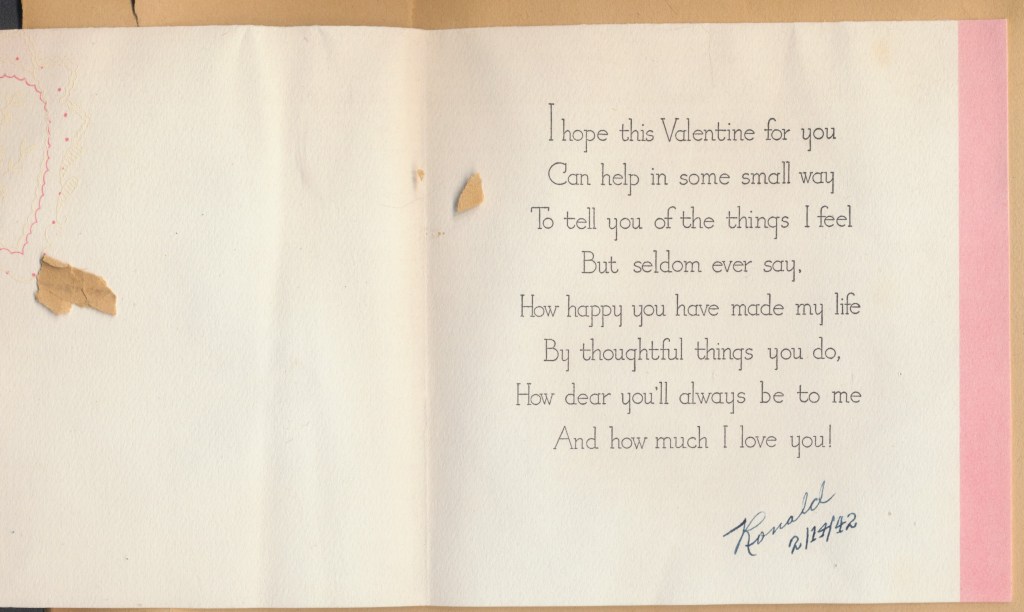 I hope this Valentine for you
Can help in some small way
To tell you of the things I feel
But seldom ever say,
How happy you have made my life
By thoughtful things you do,
How dear you'll always be to me
And how much I love you!
Ronald
2/14/42